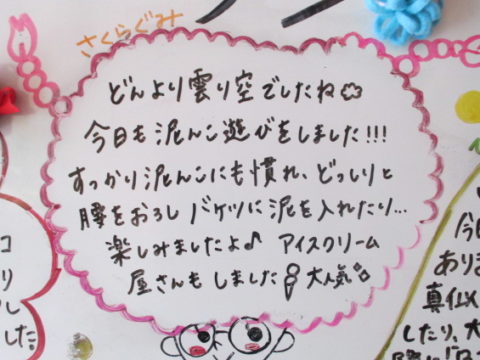 さくらぐみ
どんより雲り空でしたね
今日も泥んこ遊びをしました!!!
すっかり泥んこにも慣れ、どっしりと
腰をおろし バケツに泥を入れたり...
楽しみましたよ♪ アイスクリーム
屋さんもしました 大人気
コ
り
し
した。
今日
ありま
真似
したり、大